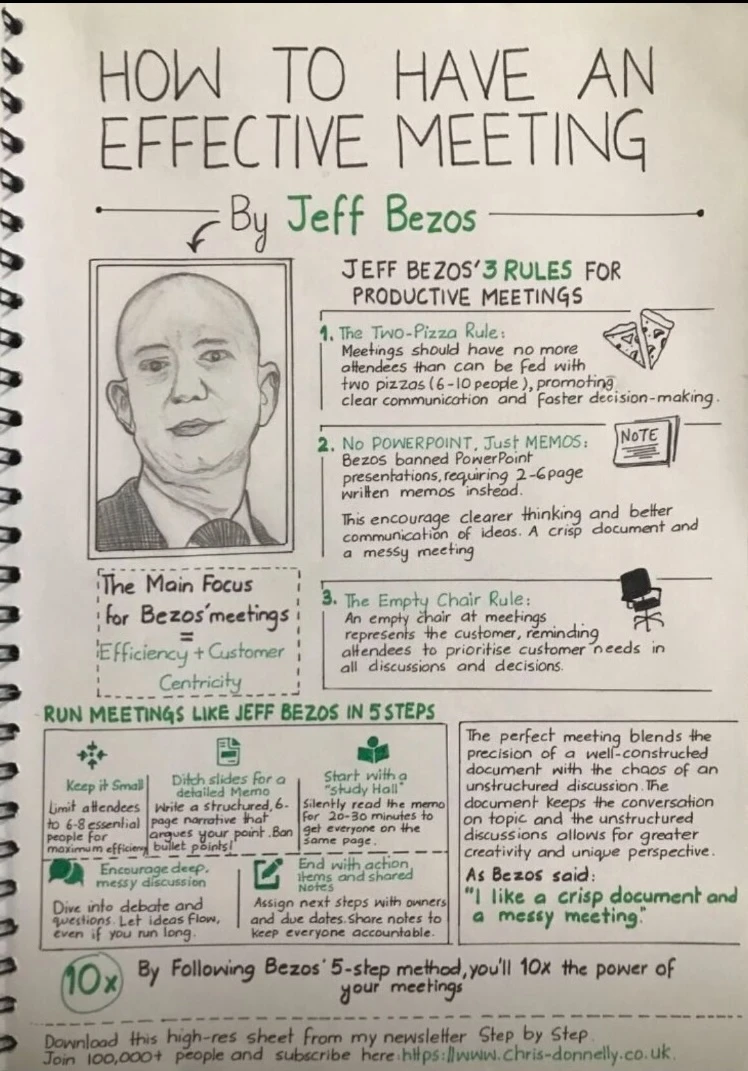 HOW TO HAVE AN
EFFECTIVE MEETING
By Jeff Bezos
JEFF BEZOS' 3 RULES FOR
PRODUCTIVE MEETINGS
1. The Two-Pizza Rule:
Meetings should have no more
attendees than can be fed with
two pizzas (6-10 people), promoting
clear communication and faster decision-making.
2. No POWERPOINT, Just MEMOS:
Bezos banned PowerPoint
presentations, requiring 2-6 page
written memos instead.
This encourage clearer thinking and better
communication of ideas. A crisp document and
a messy meeting
NOTE
3. The Empty Chair Rule:
An empty chair at meetings
represents the customer, reminding
attendees to prioritise customer needs in
all discussions and decisions.
The Main Focus
for Bezos' meetings
=
Efficiency + Customer
Centricity
RUN MEETINGS LIKE JEFF BEZOS IN 5 STEPS
Keep it Small
Limit attendees
to 6-8 essential
people for
maximum efficieny
Ditch slides for a
detailed Memo
Write a structured, 6-
page narrative that
argues your point. Ban
bullet points!
Start with a
"study Hall"
Silently read the memo
for 20-30 minutes to
get everyone on the
same page.
Encourage deep,
messy discussion
Dive into debate and
questions. Let ideas flow,
even if you run long.
End with action,
items and shared
Notes
Assign next steps with owners
and due dates. Share notes to
keep everyone accountable.
The perfect meeting blends the
precision of a well-constructed
document with the chaos of an
unstructured discussion. The
document keeps the conversation
on topic and the unstructured
discussions allows for greater
creativity and unique perspective.
As Bezos said:
"I like a crisp document and
a messy meeting."
10x By Following Bezos' 5-step method, you'll 10x the power of
your meetings
Download this high-res sheet from my newsletter Step by Step.
Join 100,000+ people and subscribe here: https://www.chris-donnelly.co.uk.